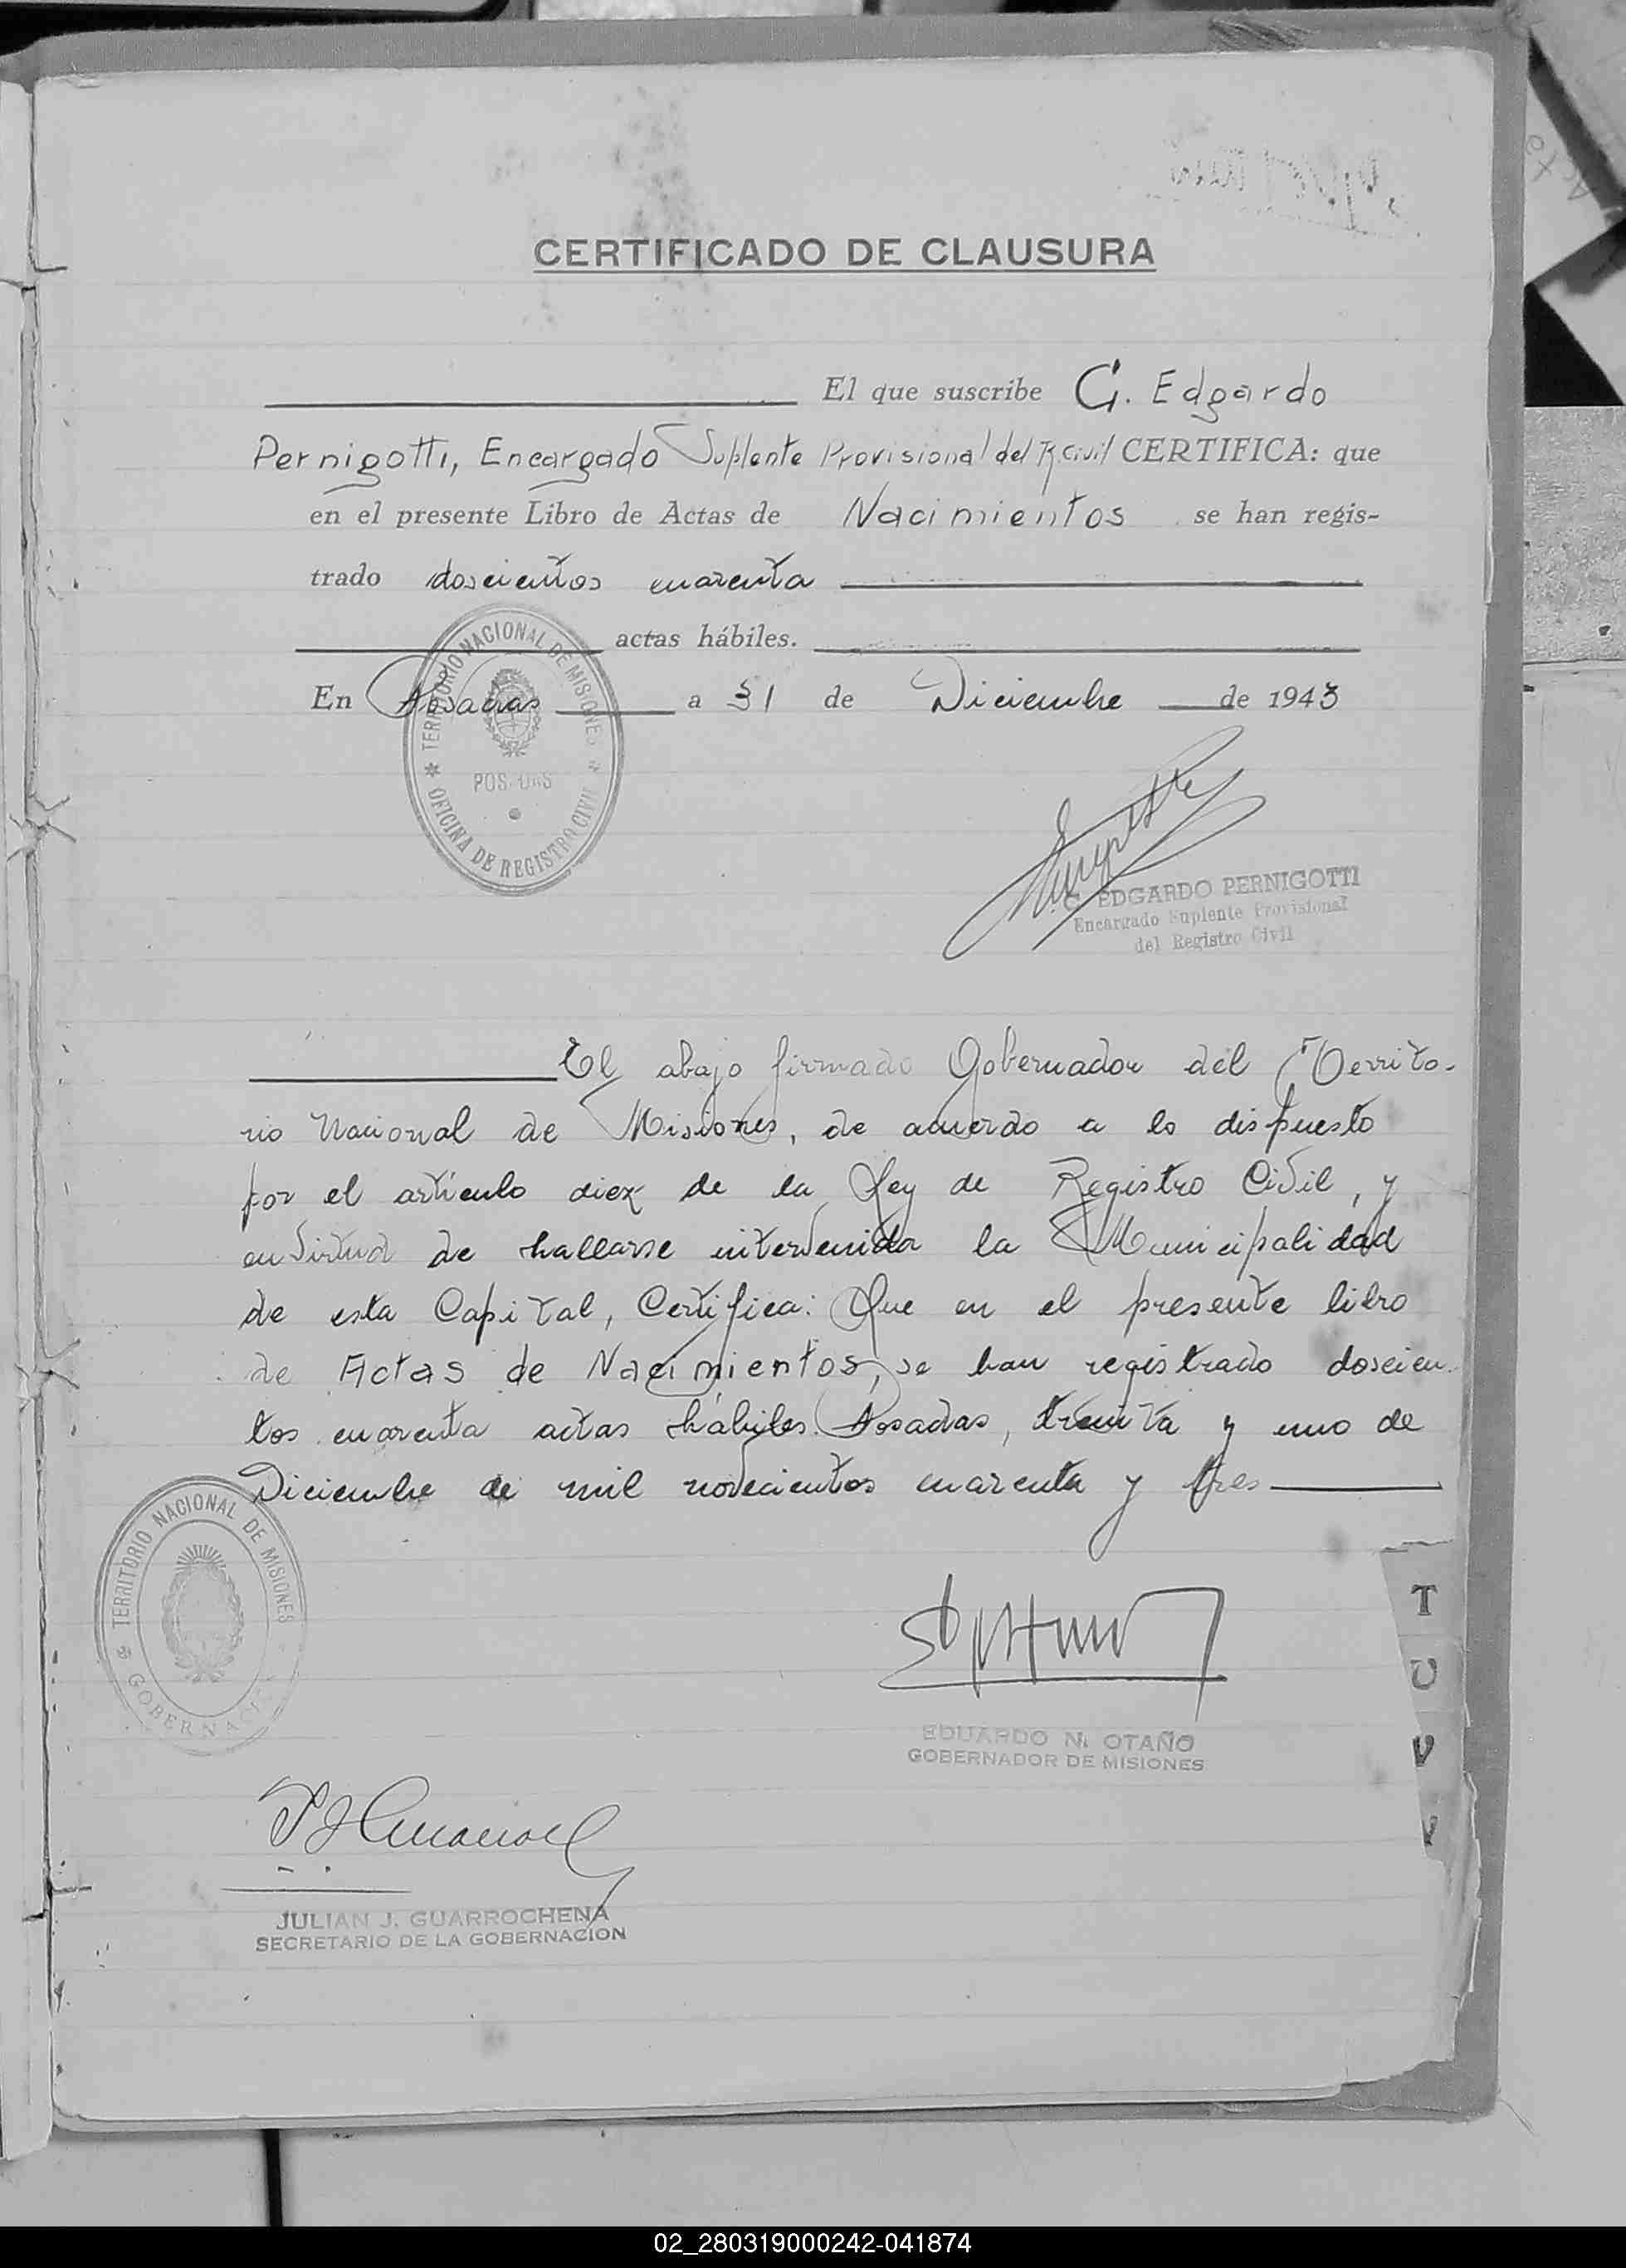 CERTIFICADO DE CLAUSURA
El que suscribe C. Edgardo
Pernigotti, Encargado Suplente Provisional del R. Civil CERTIFICA: que
en el presente Libro de Actas de Nacimientos se han regis-
trado doscientos cuarenta
actas hábiles.
En Posadas a 31 de Diciembre de 1943
TERRITORIO NACIONAL DE MISIONES
POSADAS
OFICINA DE REGISTRO CIVIL
C. EDGARDO PERNIGOTTI
Encargado Suplente Provisional
del Registro Civil
El abajo firmado Gobernador del Territo-
rio Nacional de Misiones, de acuerdo a lo dispuesto
por el artículo diez de la Ley de Registro Civil, y
en virtud de hallarse intervenida la Municipalidad
de esta Capital, Certifica: Que en el presente libro
de Actas de Nacimientos, se han registrado doscien-
tos cuarenta actas hábiles. Posadas, treinta y uno de
Diciembre de mil novecientos cuarenta y tres
TERRITORIO NACIONAL DE MISIONES
GOBERNACION
T
U
V
EDUARDO N. OTAÑO
GOBERNADOR DE MISIONES
JULIAN J. GUARROCHENA
SECRETARIO DE LA GOBERNACION
02_280319000242-041874